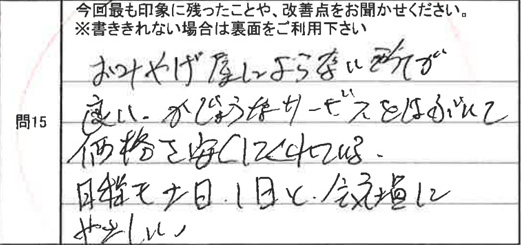 今回最も印象に残ったことや、改善点をお聞かせください。
※書ききれない場合は裏面をご利用下さい
問15
おみやげ屋によらない所が
良い。かじょうなサービスをはぶいて
価格を安くしてくれている。
日程も土日、1日と、
やさしい